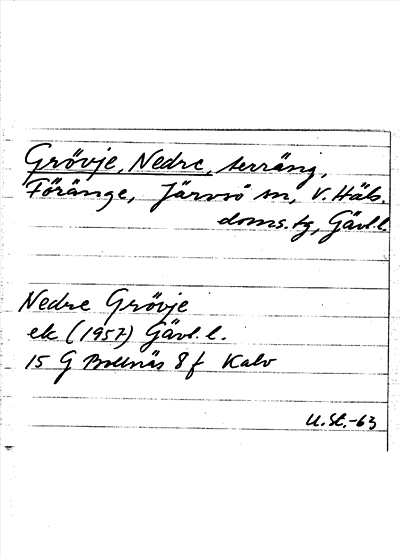 Grövje, Nedre, terräng,
Föränge, Järvsö sn, V. Häls.
doms.tg, Gävl.l.
Nedre Grövje
ek (1957) Gävl. l.
15 G Bollnäs 8 f Kalv
U.St.-63